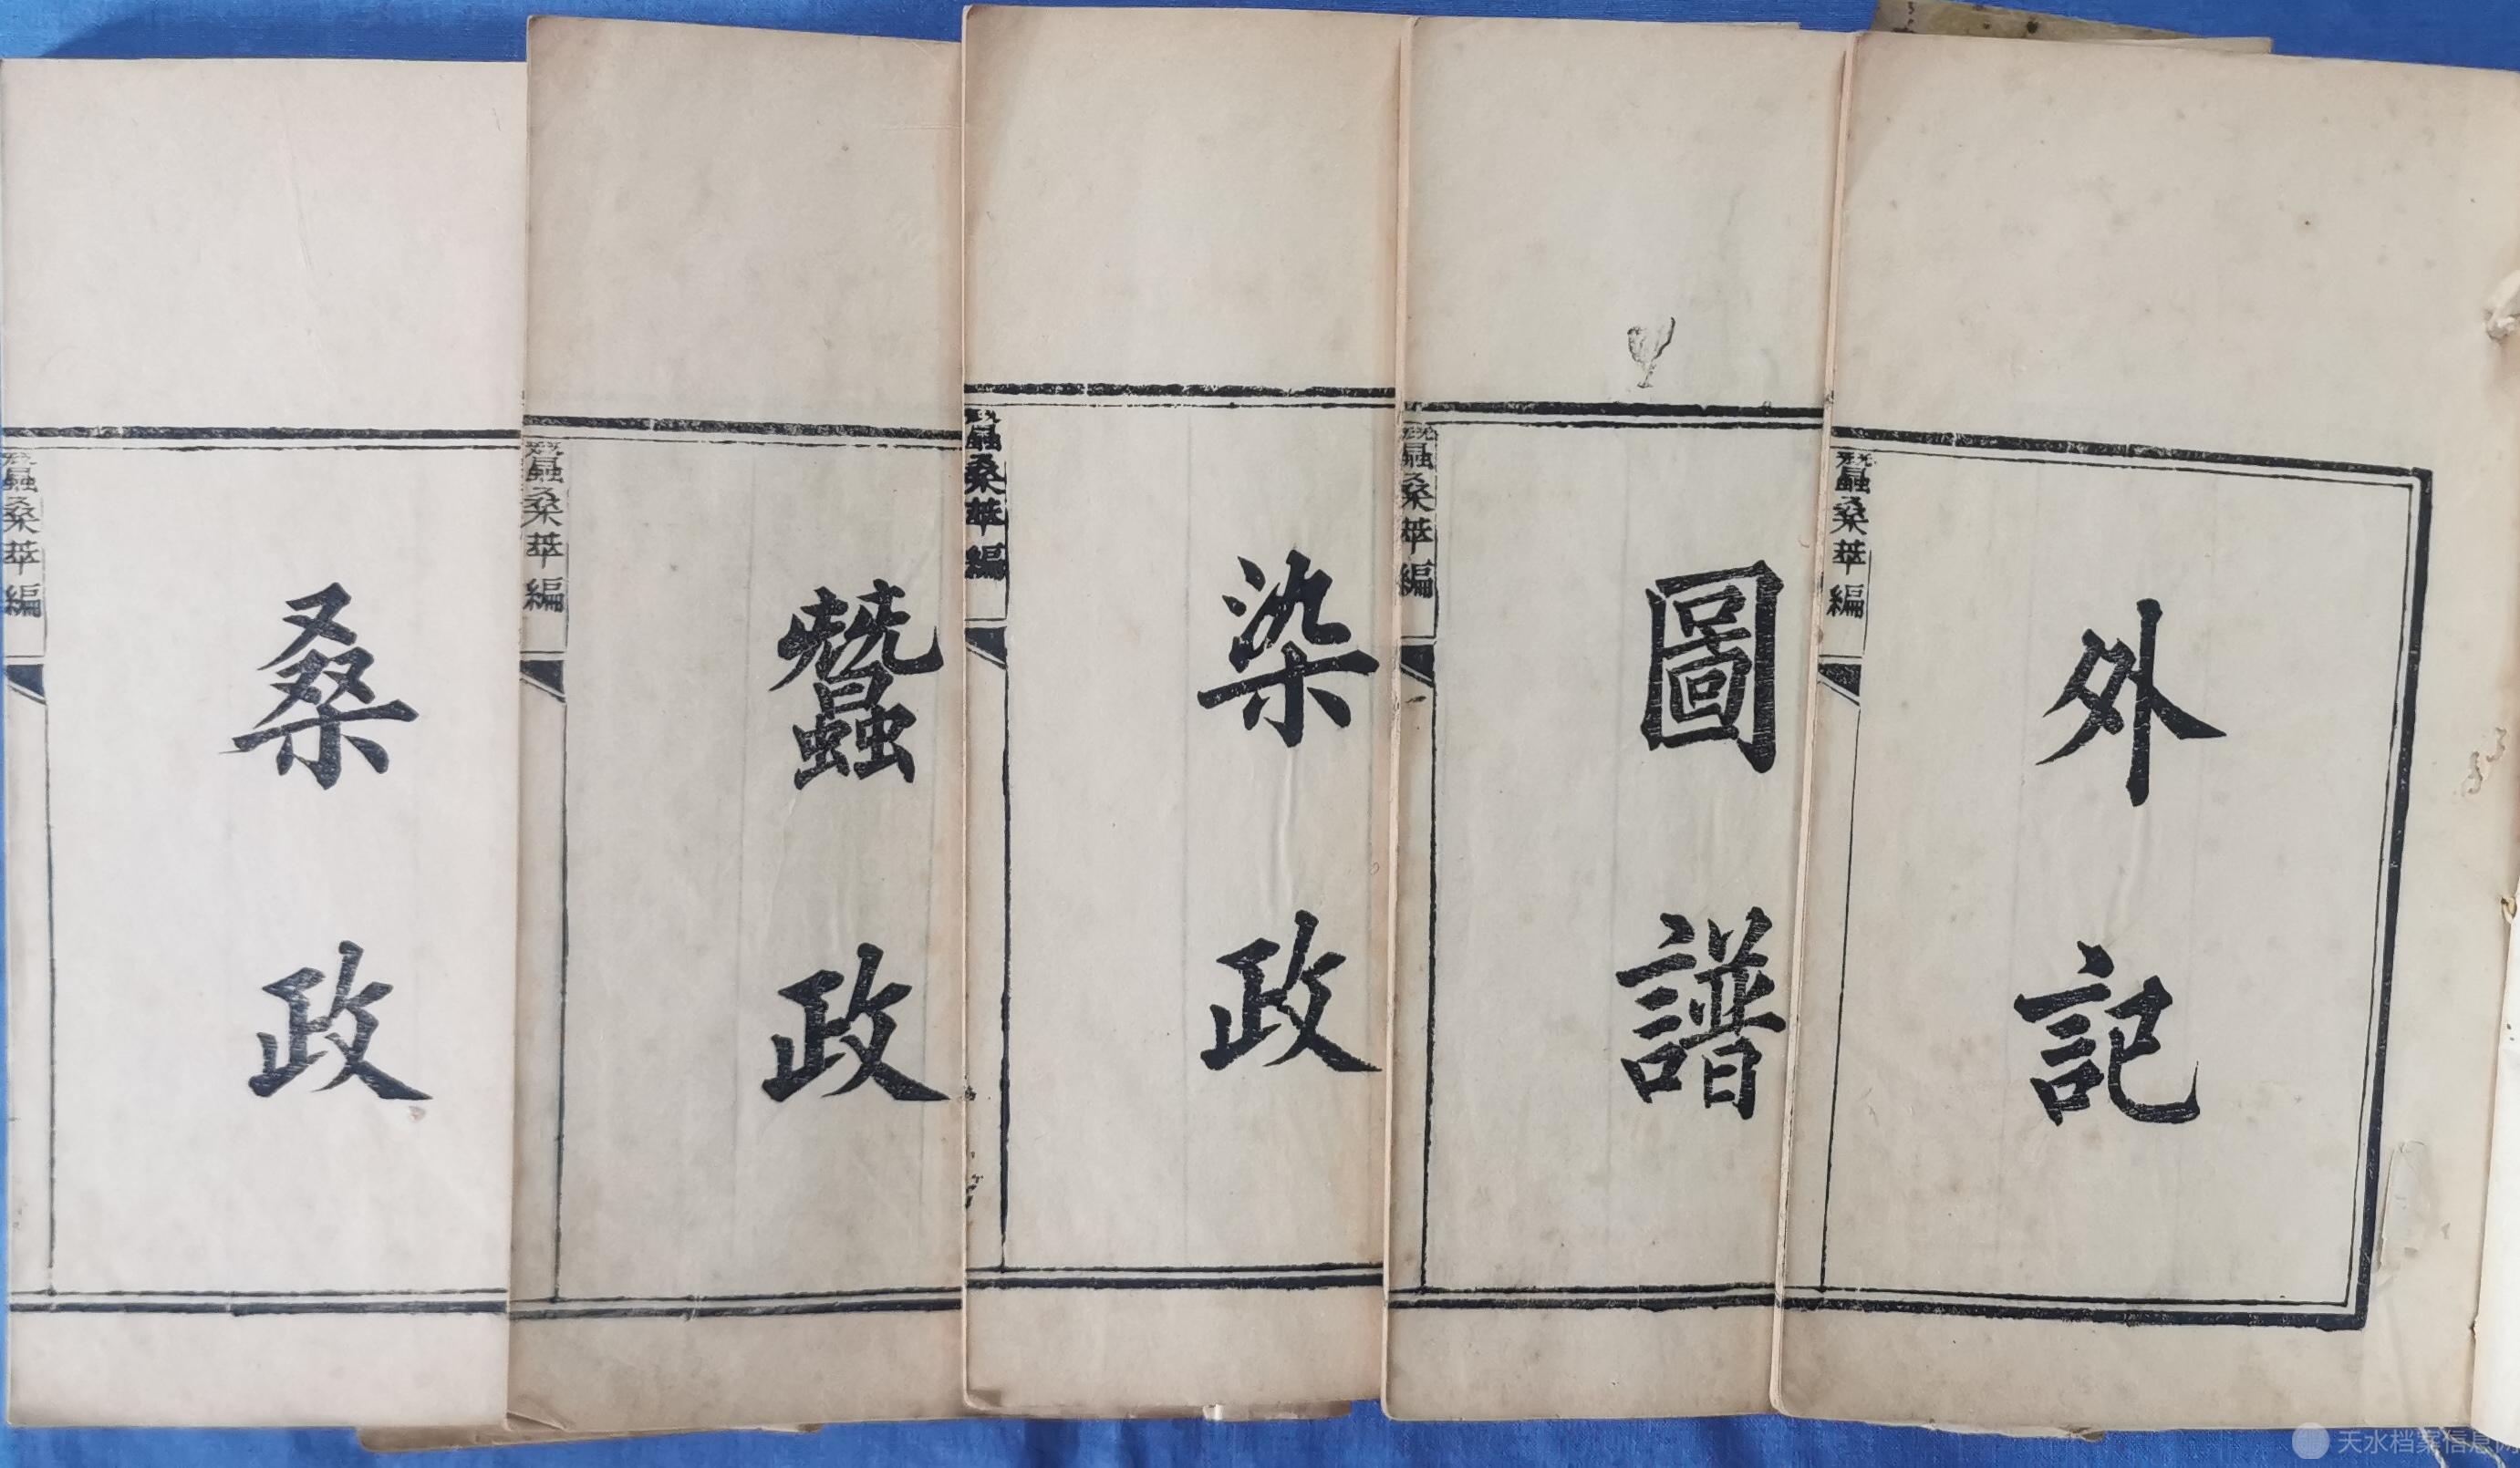 桑政
蠶桑萃編
蠶政
蠶桑萃編
染政
蠶桑萃編
圖譜
蠶桑萃編
外記
蠶桑萃編
天水档案信息网